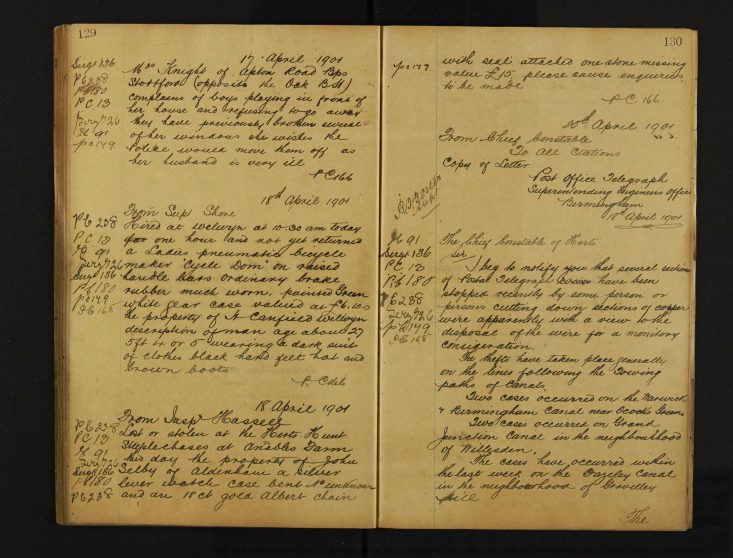 129
17 April 1901
Mrs Knight of Apton Road Bps
Stortford (opposite the Oak B H)
complains of boys playing in front of
her house and refusing to go away
they have previously broken several
of her windows she wishes the
Police would move them off as
her husband is very ill
PC 166
Sergt 136
PC 238
PC 180
PC 13
Sergt 126
H 91
PC 149
18th April 1901
From Supt Shore
Hired at Welwyn at 10-30 am today
for one hour and not yet returned
a Ladies pneumatic bicycle
maker Cycle Dom on raised
handle bars ordinary brake
rubber much worn, painted Green
white gear case valued at £6.10.0
the property of A Canfield Welwyn
description of man age about 27
5ft 4 or 5 wearing a dark suit
of clothes black hard felt hat and
brown boots
PC 166
PC 238
PC 13
H 91
Sergt 126
Sergt 136
PC 180
PC 149
PC 168
18 April 1901
From Inspr Hassell
Lost or stolen at the Herts Hunt
Steeplechases at Gables Farm
this day the property of John
Selby of Aldenham a silver
lever watch case bent No unknown
and an 18 ct gold Albert chain
PC 238
PC 13
H 91
Sergt 126
Sergt 136
PC 180
PC 238
130
with seal attached one stone missing
value £15 please cause enquiries
to be made
PC 166
PC 149
20th April 1901
From Chief Constable
To All Stations
Copy of Letter
Post Office Telegraph
Superintending Engineers Office
Birmingham
18th April 1901
The Chief Constable of Herts
Sir,
I beg to notify you that several sections
of Postal Telegraph have been
stopped recently by some person or
persons cutting down sections of copper
wire apparently with a view to the
disposal of the wire for a monitory
consideration.
The thefts have taken place generally
on the lines following the towing
paths of Canals.
Two cases occurred on the Warwick
& Birmingham Canal near Ococks Green
Two cases occurred on Grand
Junction Canal in the neighbourhood
of Willesden.
The cases have occurred within
the last week on the Canal
in the neighbourhood of Gravelley
Hill
The
H 91
Sergt 136
PC 13
PC 180
PC 238
Sergt 126
PC 149
PC 168